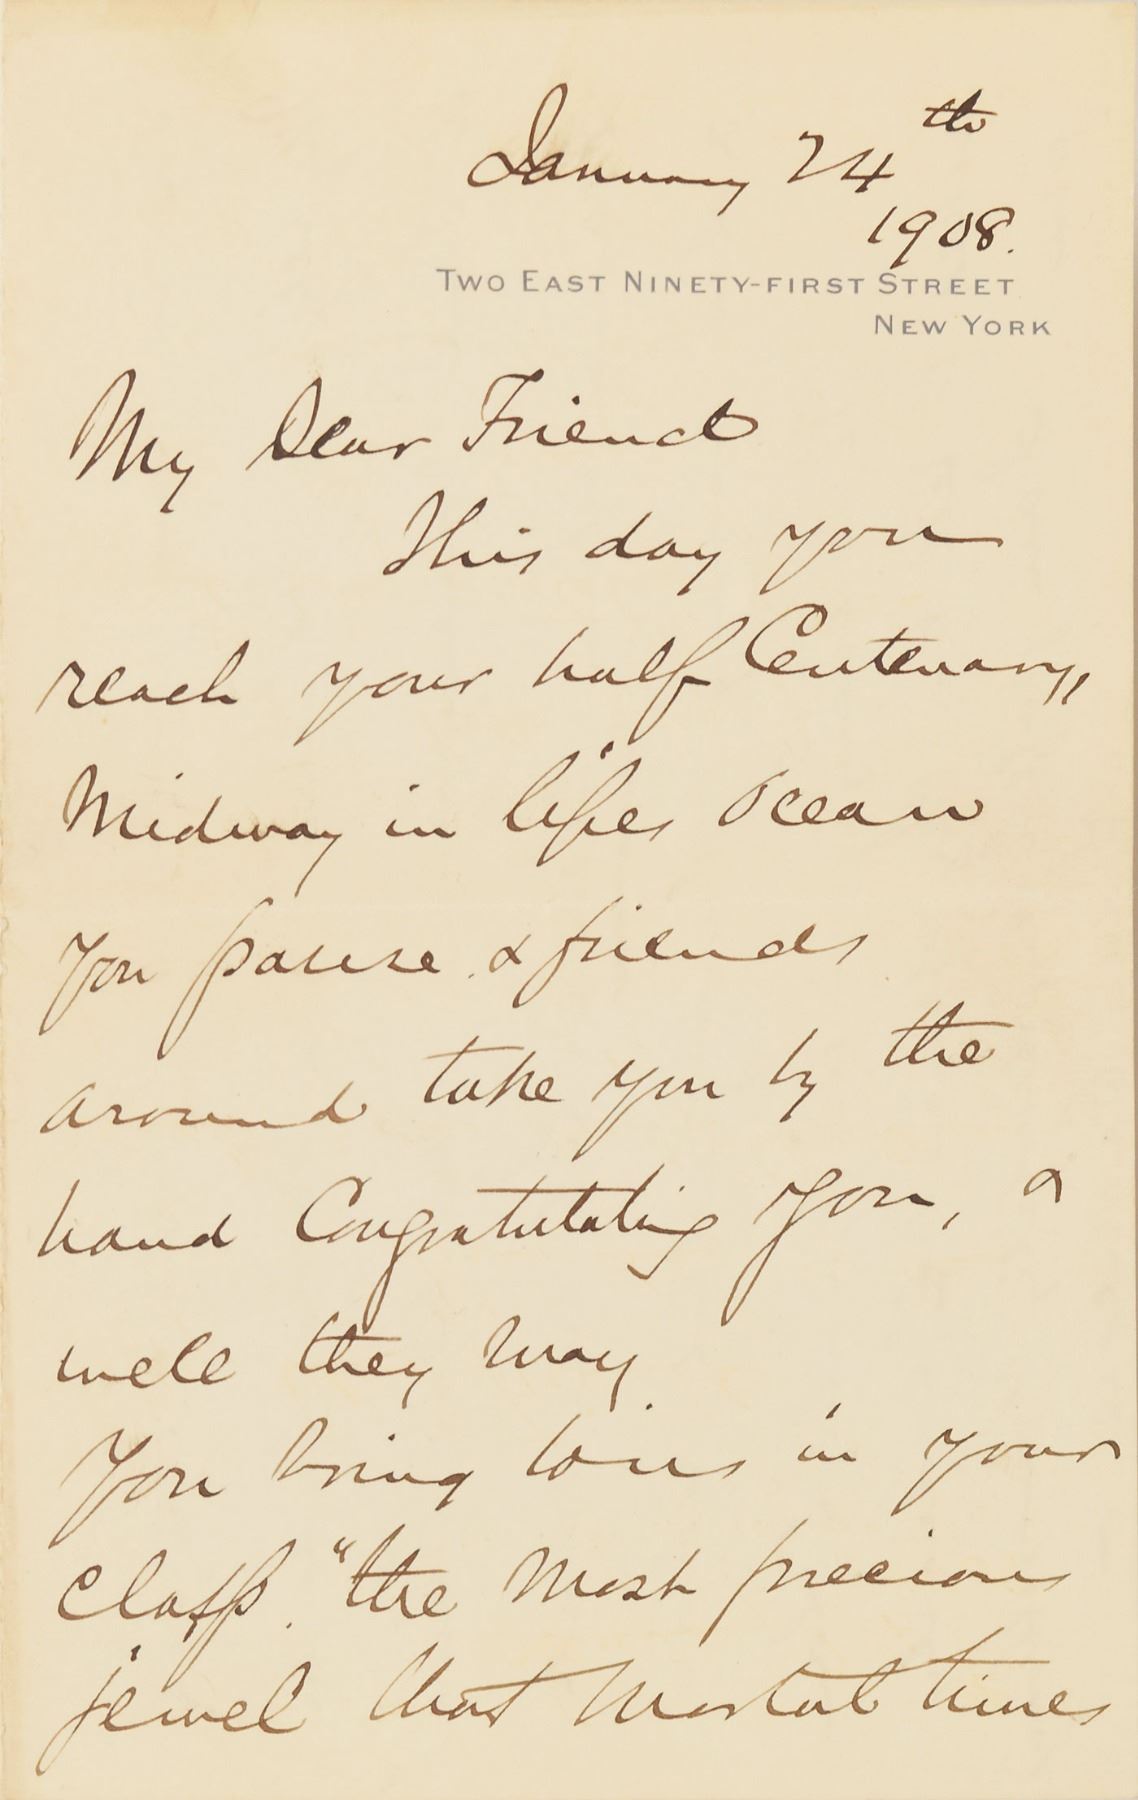 January 24th
1908.
TWO EAST NINETY-FIRST STREET
NEW YORK
My Dear Friend
This day you
reach your half Centenary,
Midway in life's Ocean
you pause & friends
around take you by the
hand Congratulating you, &
well they may
You bring in your
clasp. "the most precious
jewel that mortal times